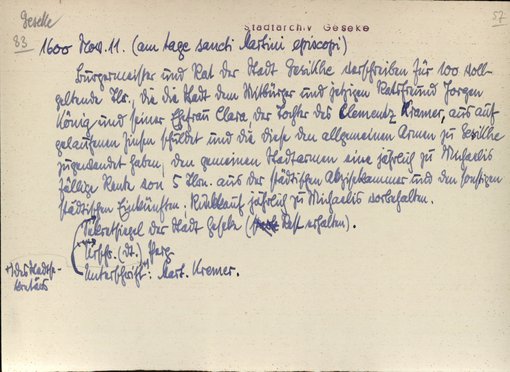 Geseke
83
Stadtarchiv Geseke
57
1600 Nov. 11. (am tage sancti Martini episcopi)
Bürgermeister und Rat der Stadt Gesikhe verschreiben für 100 voll-
geltende Tlr., die die Stadt dem Mitbürger und jetzigen Ratsfreund Jorgen
König und seiner Ehefrau Clara, der Tochter des Clementz Kramer, aus auf-
gelaufenen Zinsen schuldet und die diese den allgemeinen Armen zu Gesikhe
zugewendet haben, den gemeinen Stadtarmen eine jährlich zu Michaelis
fällige Rente von 5 Tlrn. aus der städtischen Akzisekammer und den sonstigen
städtischen Einkünften. Rückkauf jährlich zu Michaelis vorbehalten.
Sekretsiegel der Stadt Geseke (Rest erhalten).
Urschr. (dt.) Perg.
Unterschrift+): Mart. Kremer.
+) des Stadtse-
kretärs